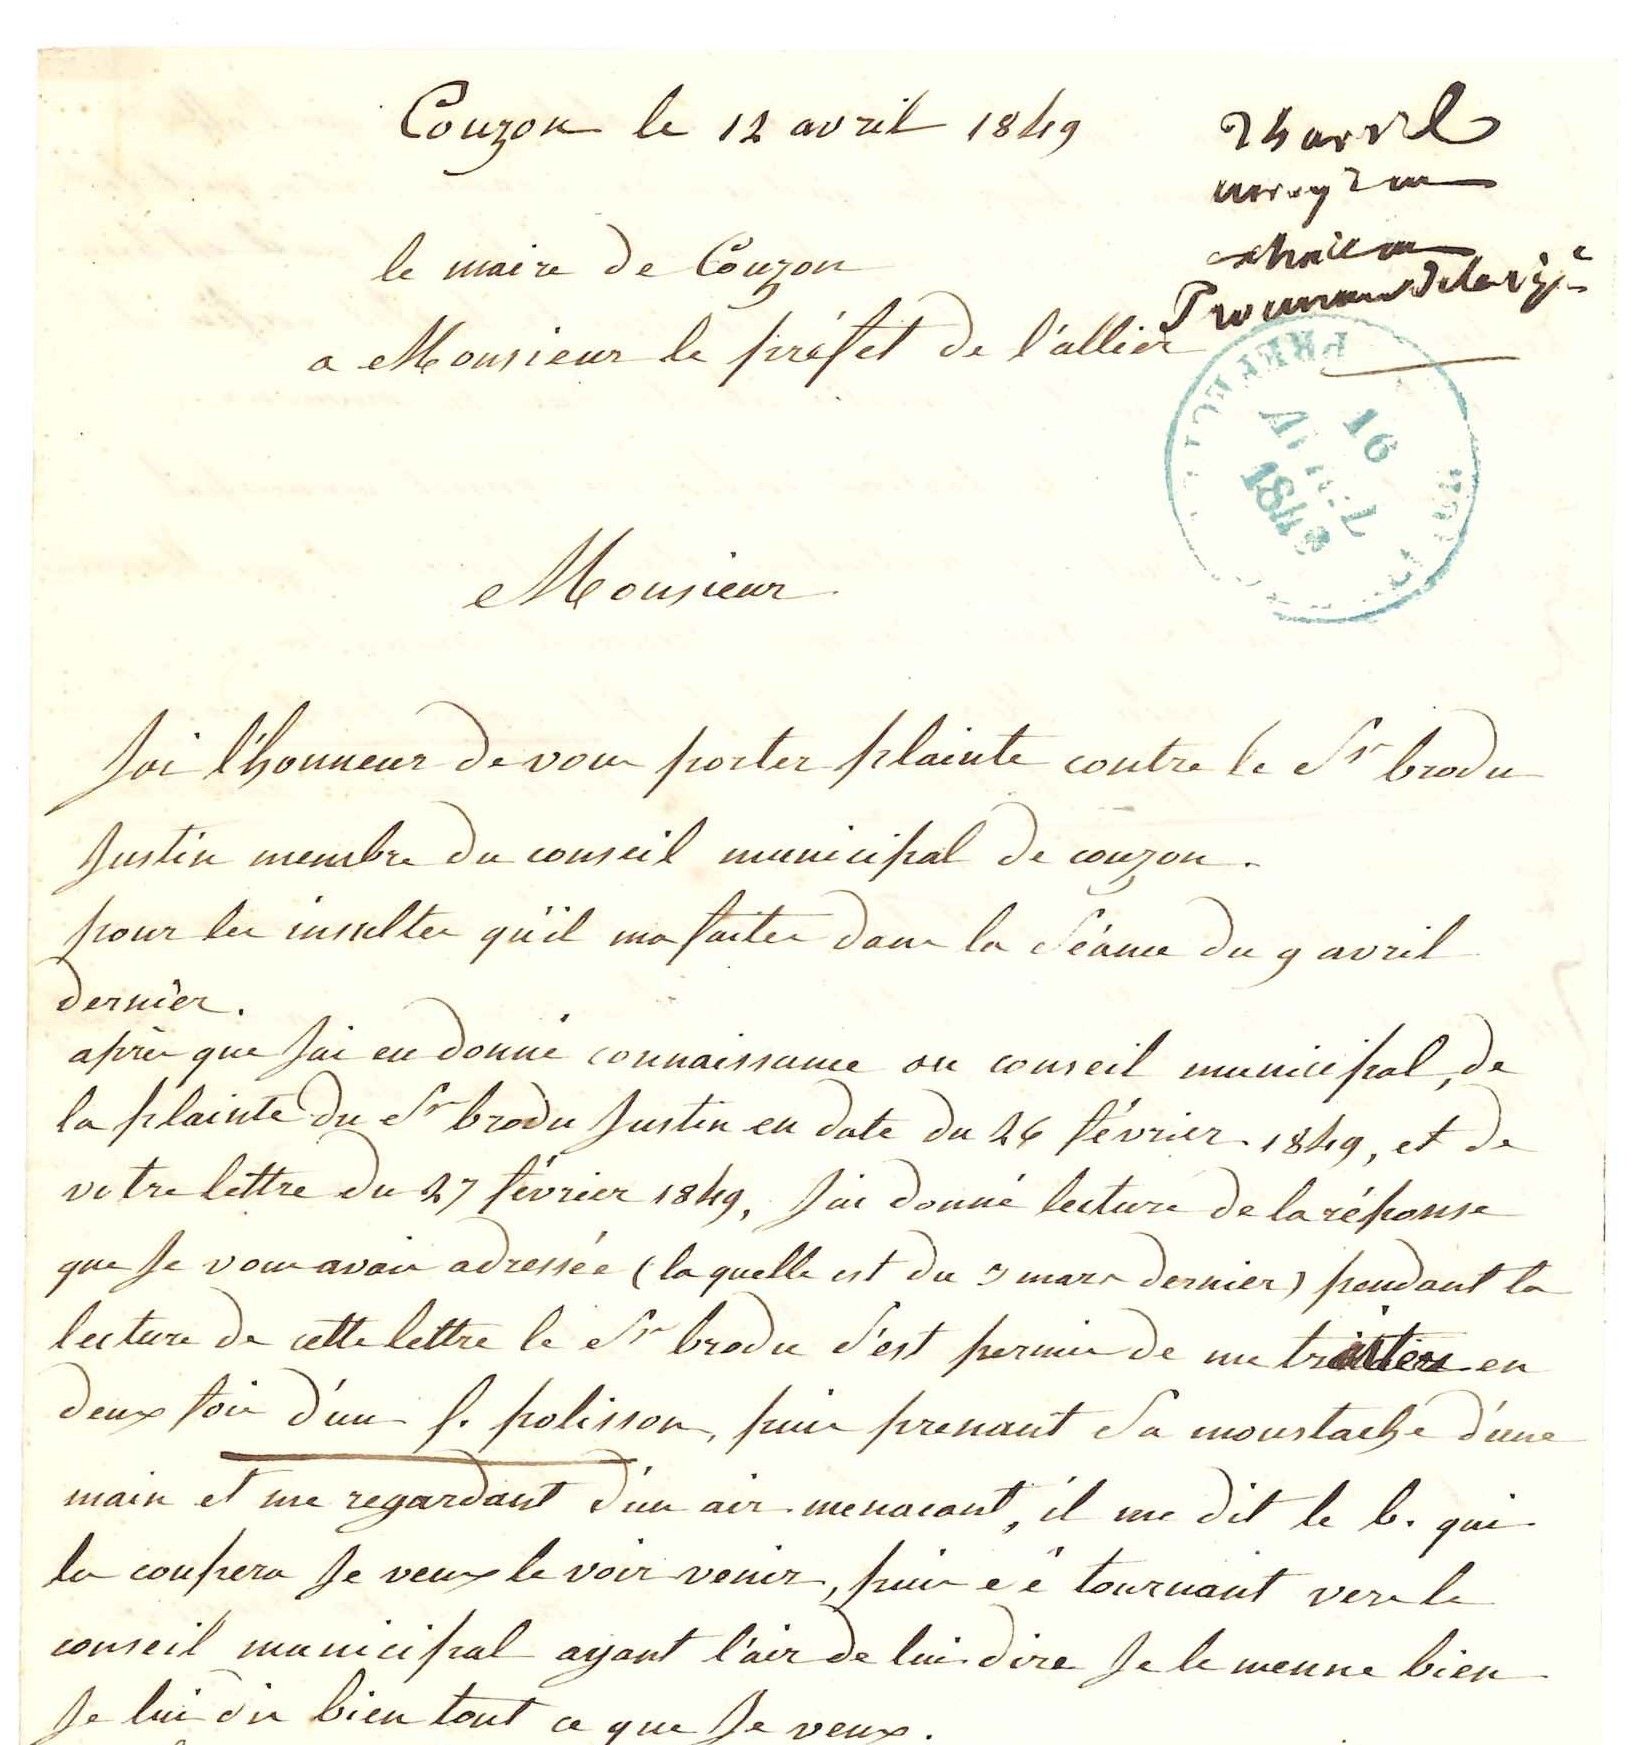 Couzon le 12 avril 1849
24 avril
le maire de Couzon
a Monsieur le préfet de l'allier
PREFECTURE
16
AVRIL
1849
Monsieur
J'ai l'honneur de vous porter plainte contre le Sr brodu
Justin membre du conseil municipal de couzon.
pour les insultes qu'il ma faites dans la Séance du 9 avril
dernier.
après que J'ai eu donné connaissance au conseil municipal, de
la plainte du Sr brodu Justin en date du 26 février 1849, et de
votre lettre du 27 février 1849, J'ai donné lecture de la réponse
que Je vous avais adressée (la quelle est du 3 mars dernier) pendant la
lecture de cette lettre le Sr brodu S'est permis de me traiter en
deux fois d'un f. polisson, puis prenant Sa moustache d'une
main et me regardant d'un air menacant, il me dit le b. qui
la coupera Je veux le voir venir, puis c é tournant vers le
conseil municipal ayant l'air de lui dire Je le menne bien
Je lui dis bien tout ce que Je veux.